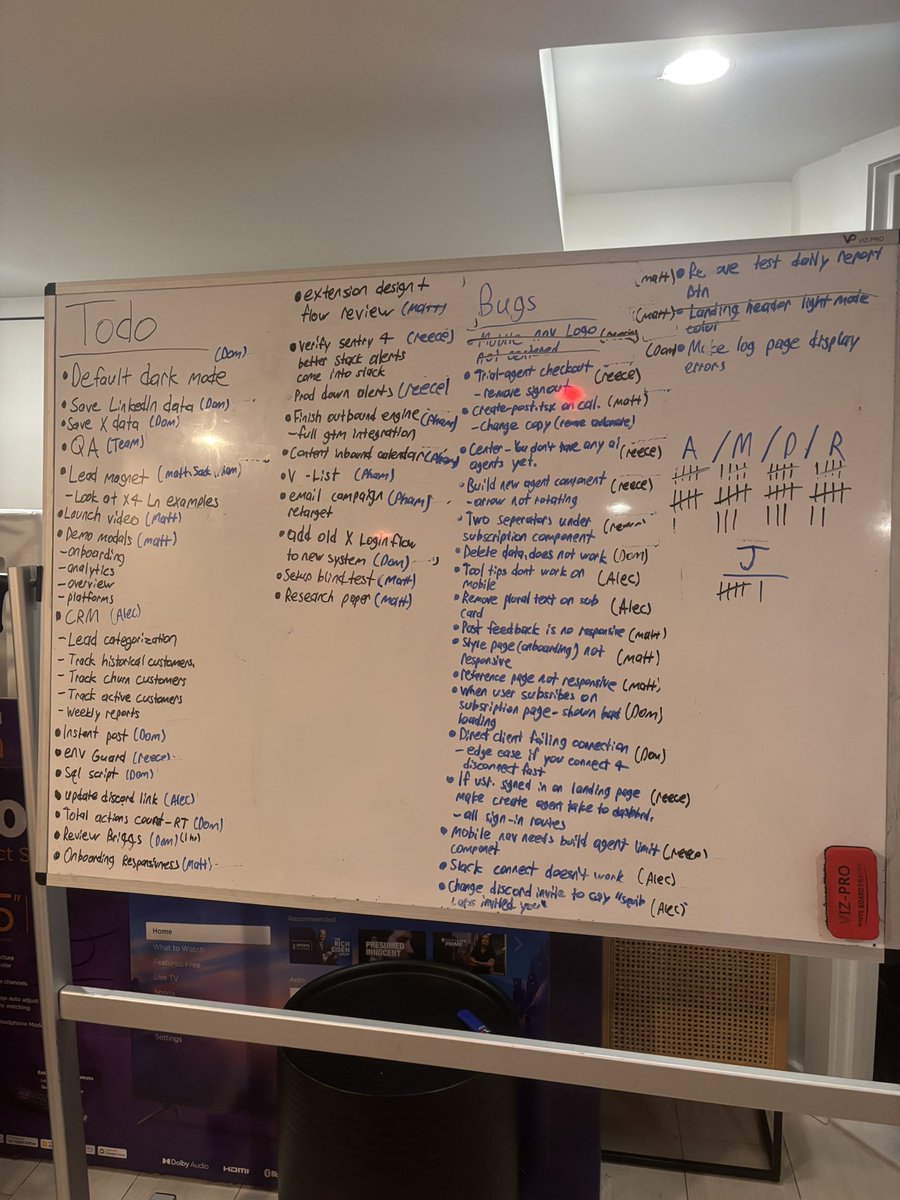 VIZ-PRO
Todo
• Default dark mode (Dom)
• Save LinkedIn data (Dom)
• Save X data (Dom)
• QA (Team)
• Lead Magnet (matt,
- Look at X4 Ln examples
• Launch video (Matt)
• Demo modals (matt)
- onboarding
- analytics
- overview
- platforms
• CRM (Alec)
- Lead categorization
- Track historical customers.
- Track churn customers
- Track active customers
- weekly reports
• Instant post (Dom)
• env Guard (reece)
• Sql script (Dom)
• update discord link (Alec)
• Total actions count-RT (Dom)
• Review Briggs (Dom)
• Onboarding Responsivness (Matt)
• extension design +
flow review (MATT)
• verify sentry & (reece)
better stack alerts
came into slack
• Prod down alerts (reece)
• Finish outbound engine (Pham)
- full gtm integration
• Content inbound calendar (Pham)
• V -List (Pham)
• email campaign (Pham)
retarget
• add old X Login flow
to new system (Dom)
• Setup blind test (Matt)
• Research paper (Matt)
Bugs
Mobile nav Logo
not centered
• Trial-agent checkout (reece)
- remove signout
• Create-post.tsx on call. (Matt)
- Change copy (remove automate)
• Center - You don't have any ai (reece)
agents yet.
• Build new agent component (reece)
- arrow not rotating
• Two seperators under
subscription component
• Delete data does not work (Dom)
• Tool tips dont work on (Alec)
mobile
• Remove plural text on sub (Alec)
card
• Post feedback is no responsive (matt)
• Style page (onboarding) not (matt)
responsive
• reference page not responsive (matt)
• when user subsribes on
subsription page - shown bad (Dom)
loading
• Direct client failing connection (Dom)
- edge case if you connect &
disconnect fast
• If usr. signed in on landing page (reece)
make create agent take to dashbrd.
- all sign-in routes
• Mobile nav needs build agent limit (reece)
componet
• Slack connect doesn't work (Alec)
• Change discord invite to say "squib (Alec)
Labs invited you"
(matt) • Re ove test daily report
btn
(matt) • Landing header light mode
color
(Dom) • Make log page display
errors
A / M / D / R
J
VIZ-PRO
WHITE BOARD ERASER
Recommended
Home
What to Watch
Featured Free
Live TV
Sports
Settings
Apps
THE RICH EISEN SHOW
PRESUMED INNOCENT
Dolby Audio
HDMI